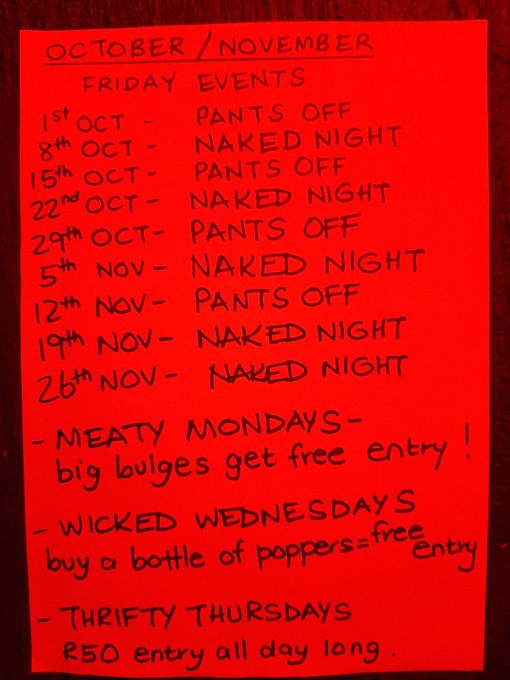 OCTOBER / NOVEMBER
FRIDAY EVENTS
1st OCT - PANTS OFF
8th OCT - NAKED NIGHT
15th OCT - PANTS OFF
22nd OCT - NAKED NIGHT
29th OCT - PANTS OFF
5th NOV - NAKED NIGHT
12th NOV - PANTS OFF
19th NOV - NAKED NIGHT
26th NOV - NAKED NIGHT
- MEATY MONDAYS -
big bulges get free entry !
- WICKED WEDNESDAYS
buy a bottle of poppers = free entry
- THRIFTY THURSDAYS
R50 entry all day long .